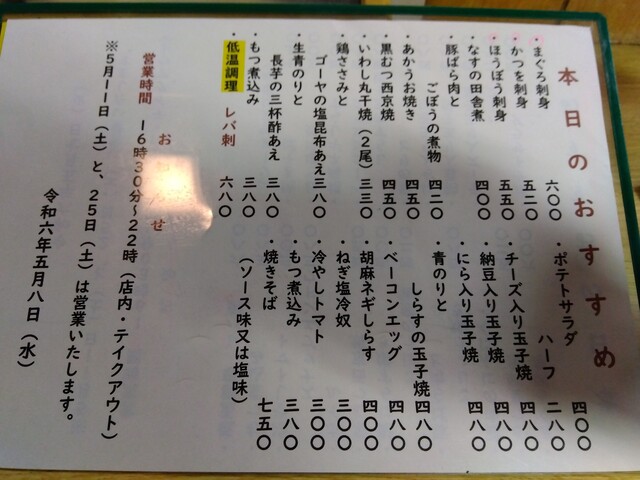 本日のおすすめ
・まぐろ刺身 六〇〇
・かつを刺身 五二〇
・ほうぼう刺身 五五〇
・なすの田舎煮 四〇〇
・豚ばら肉と
ごぼうの煮物 四二〇
・あかうお焼き 四五〇
・黒むつ西京焼 四五〇
・いわし丸干焼（２尾） 三三〇
・鶏ささみと
ゴーヤの塩昆布あえ 三八〇
・生青のりと
長芋の三杯酢あえ 三八〇
・もつ煮込み 三八〇
・低温調理 レバ刺 六八〇
・ポテトサラダ 四〇〇
ハーフ 二八〇
・チーズ入り玉子焼 四八〇
・納豆入り玉子焼 四八〇
・にら入り玉子焼 四八〇
・青のりと
しらすの玉子焼 四八〇
・ベーコンエッグ 四八〇
・胡麻ネギしらす 四〇〇
・ねぎ塩冷奴 三〇〇
・冷やしトマト 三〇〇
・もつ煮込み 三八〇
・焼きそば 七五〇
（ソース味又は塩味）
営業時間 １６時３０分～２２時（店内・テイクアウト）
※５月１１日（土）と、２５日（土）は営業いたします。
令和六年五月八日（水）